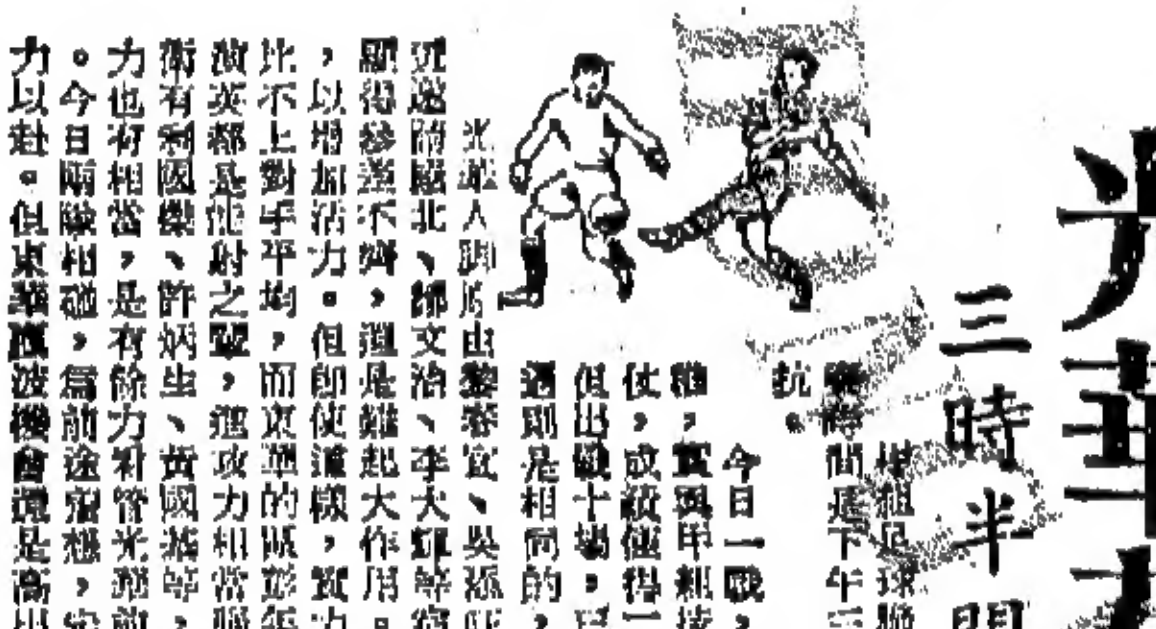 三時半
組足球聯
間是下午三
抗。
今日一戰,
，實與甲組
仗，成績僅得一
但出戰十場，已
遇則是相同的，
人脚則由黎容宜、吳添旺
近邀請北、鄧文治、李大輝等宿
顯得參差不齊，還是難起大作用。
，以增加活力。但即使這樣，實力
比不上對手平均，而東華的陳彭年
英都是能射之輩，進攻力相當強
衛有劉國傑、許炳生、黃國基等，
力也有相當，是有餘力看管光前
。今日兩隊相碰，為前途着想，必
力以赴。但東華機會還是高出